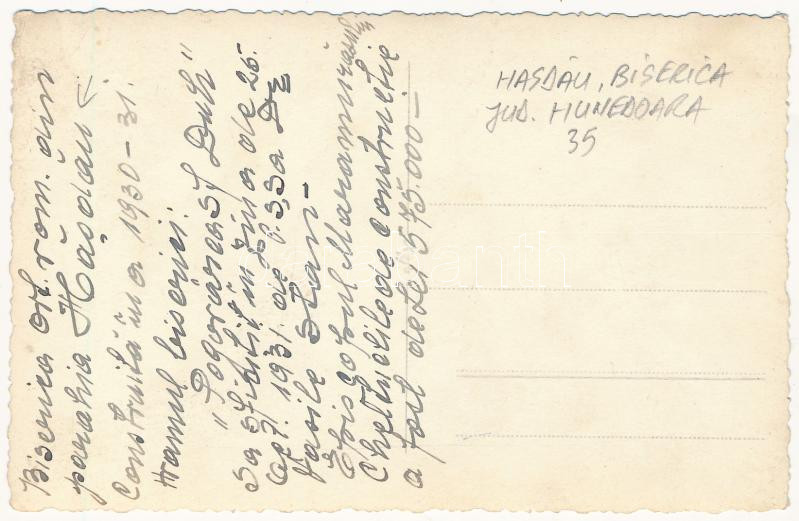 Biserica ort. rom. din
parohia Hașdău
construită în a 1930-31.
Hramul bisericei:
"Pogorârea Sf Duh"
Sa sfințit în ziua de 25.
Oct. 1931. de P.S.Sa Dr
Vasile Stan
Episcopul Maramurășului
Cheltuielile de construcție
a fost de Lei 575.000-
HASDĂU, BISERICA
JUD. HUNEDOARA
35